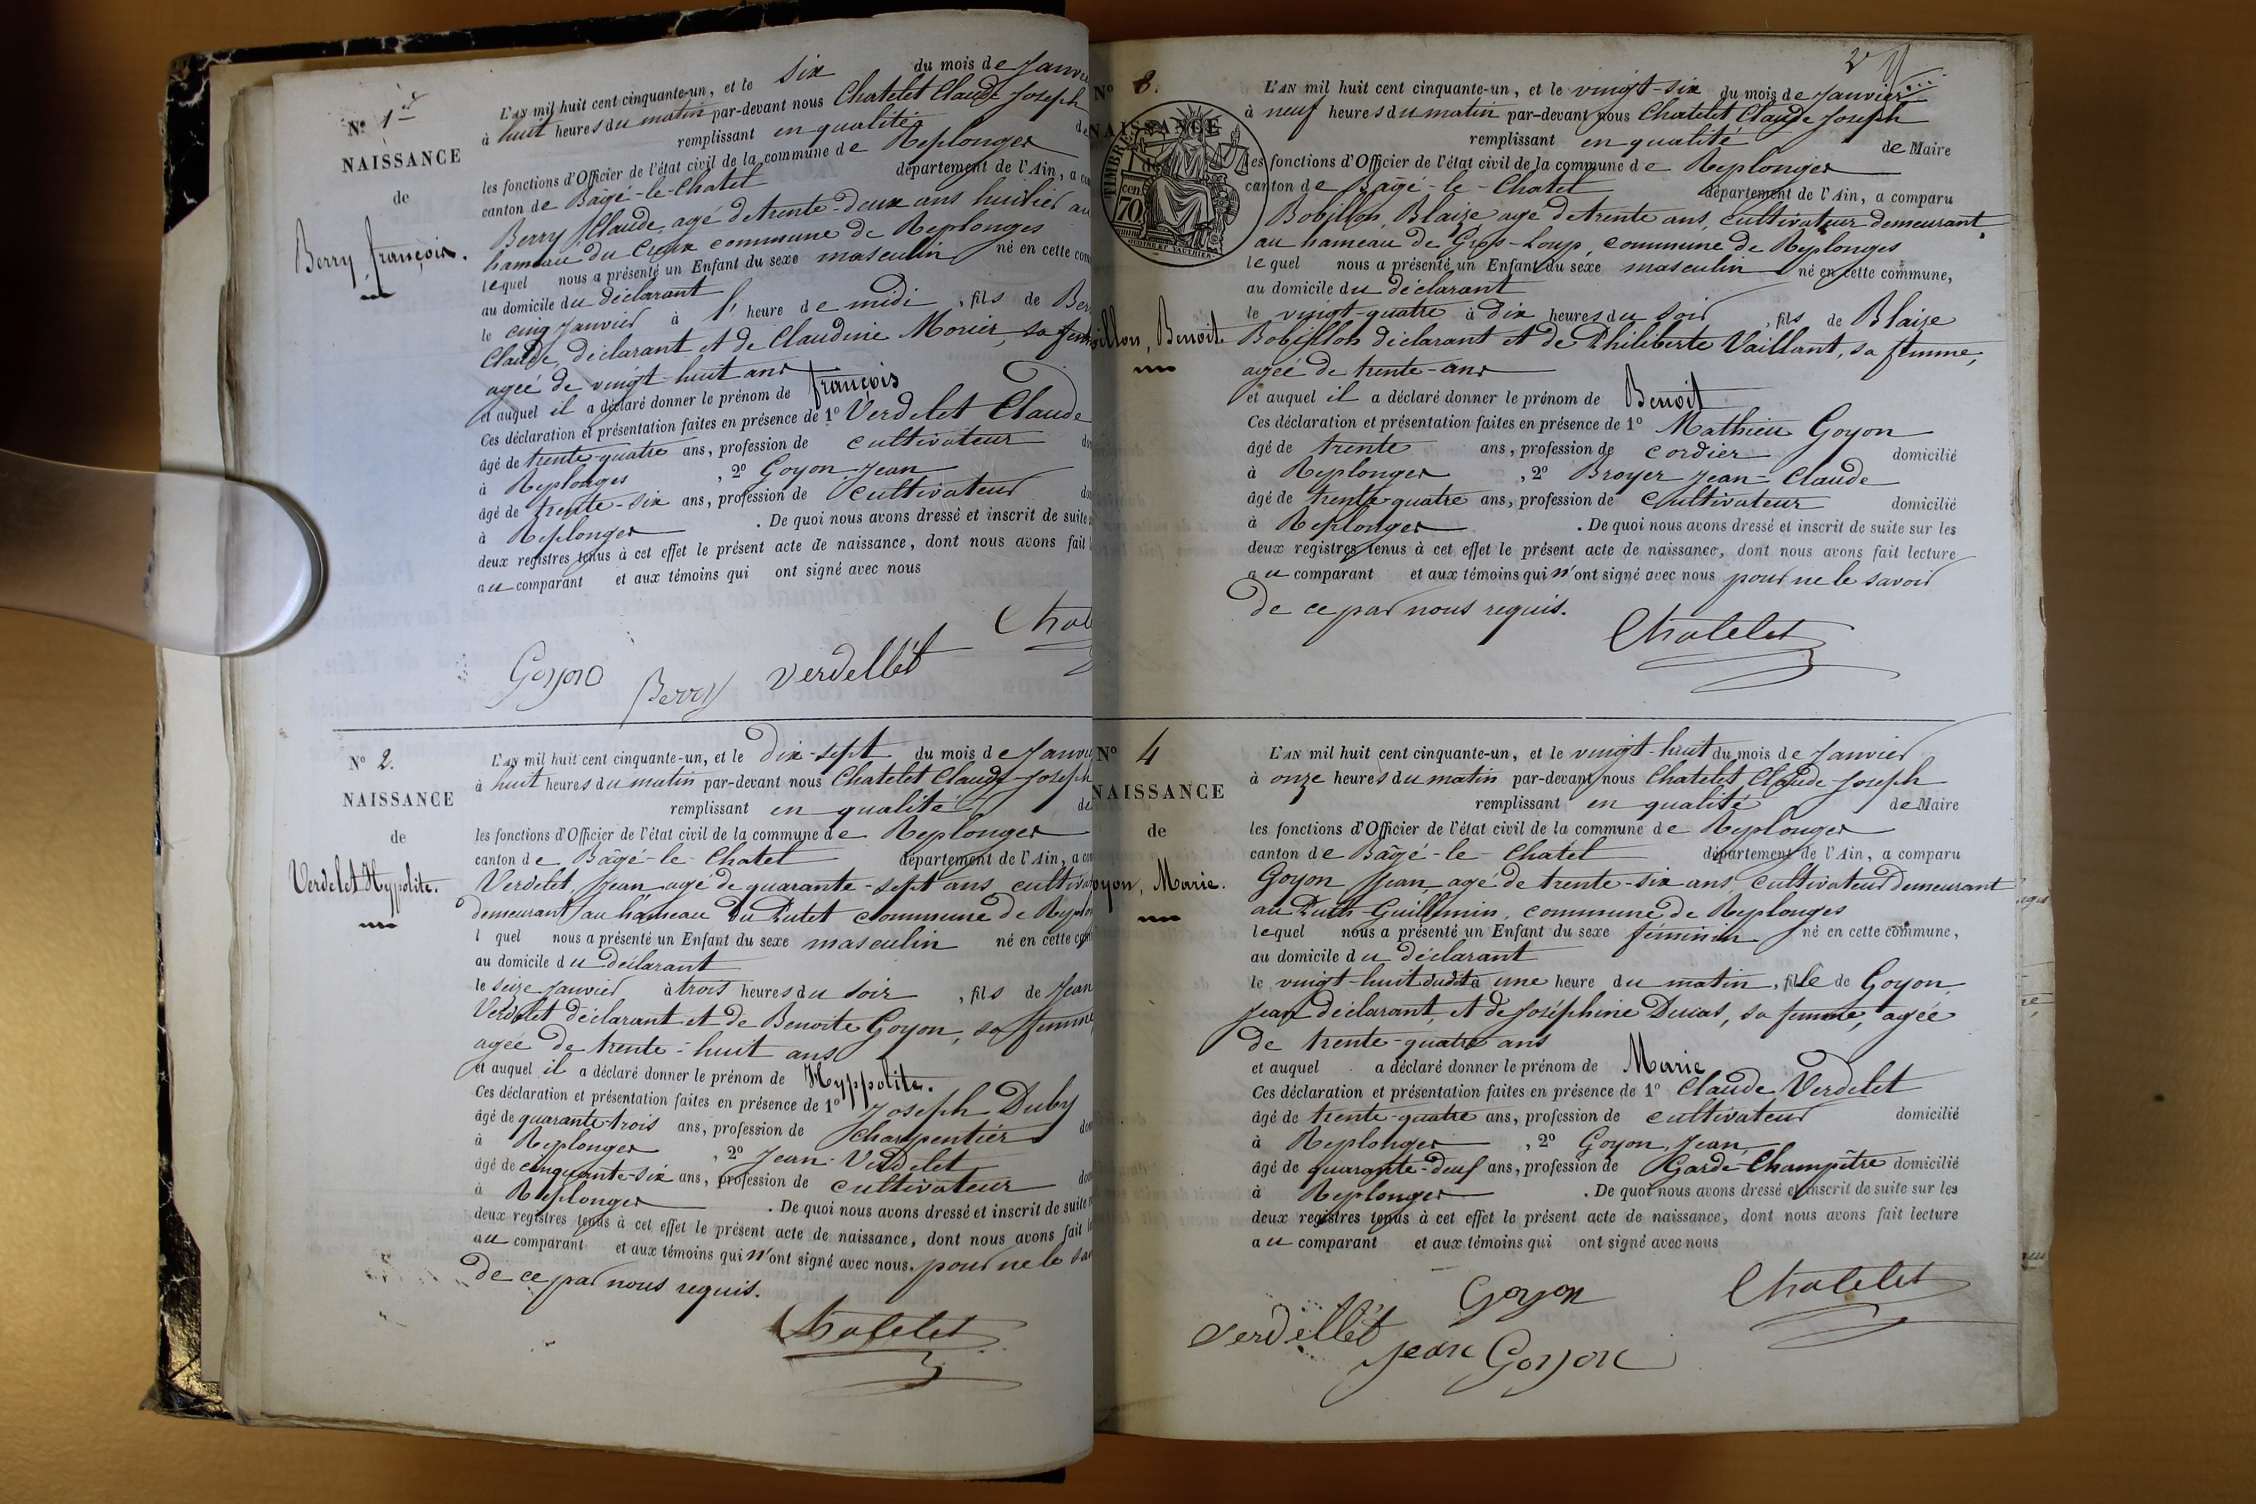 N° 1er
NAISSANCE
de
Berry, françois.
L'AN mil huit cent cinquante-un, et le six du mois de Janvie
à huit heures du matin par-devant nous Chatelet Claude Joseph
remplissant en qualité de
les fonctions d'Officier de l'état civil de la commune de Replonges
canton de Bâgé-le-Chatel département de l'Ain, a com
Berry Claude, agé de trente-deux ans huilier au
hameau du Creux commune de Replonges
lequel nous a présenté un Enfant du sexe masculin né en cette com
au domicile du déclarant
le cinq Janvier à l' heure de midi , fils de Ber
Claude, déclarant et de Claudine Monier, sa fem
agée de vingt huit ans
et auquel il a déclaré donner le prénom de françois
Ces déclaration et présentation faites en présence de 1° Verdelet Claude
âgé de trente-quatre ans, profession de cultivateur do
à Replonges , 2° Goyon Jean
âgé de trente-six ans, profession de cultivateur do
à Replonges . De quoi nous avons dressé et inscrit de suite
deux registres tenus à cet effet le présent acte de naissance, dont nous avons fait
au comparant et aux témoins qui ont signé avec nous
Chatel
Goyon Berry Verdellét
N° 2.
NAISSANCE
de
Verdelet Hyppolite.
L'AN mil huit cent cinquante-un, et le dix-sept du mois de Janvi
à huit heures du matin par-devant nous Chatelet Claude-Joseph
remplissant en qualité de
les fonctions d'Officier de l'état civil de la commune de Replonges
canton de Bâgé-le-Chatel département de l'Ain, a com
Verdelet, Jean, agé de quarante-sept ans, cultivat
demeurant au hameau du Putet commune de Replon
l quel nous a présenté un Enfant du sexe masculin né en cette com
au domicile du déclarant
le seize Janvier à trois heures du soir , fils de Jean
Verdelet déclarant et de Benoite Goyon, sa femme,
agée de trente-huit ans
et auquel il a déclaré donner le prénom de Hyppolite.
Ces déclaration et présentation faites en présence de 1° Joseph Duby
âgé de quarante-trois ans, profession de charpentier dom
à Replonges , 2° Jean Verdelet
âgé de cinquante-six ans, profession de cultivateur dom
à Replonges . De quoi nous avons dressé et inscrit de suite
deux registres tenus à cet effet le présent acte de naissance, dont nous avons fait
au comparant et aux témoins qui n'ont signé avec nous. pour ne le sav
de ce par nous requis.
Chatelet
2
N° 3.
NAISSANCE
TIMBRE
70 cen
illon, Benoit.
L'AN mil huit cent cinquante-un, et le vingt-six du mois de Janvier
à neuf heures du matin par-devant nous Chatelet Claude Joseph
remplissant en qualité de Maire
les fonctions d'Officier de l'état civil de la commune de Replonges
canton de Bâgé-le-Chatel département de l'Ain, a comparu
Bobillon, Blaize agé de trente ans, cultivateur demeurant
au hameau de Gros-Loup, commune de Replonges
lequel nous a présenté un Enfant du sexe masculin né en cette commune,
au domicile du déclarant
le vingt-quatre à dix heures du soir , fils de Blaize
Bobillon déclarant et de Philiberte Vaillant, sa femme,
agée de trente-ans
et auquel il a déclaré donner le prénom de Benoit
Ces déclaration et présentation faites en présence de 1° Mathieu Goyon
âgé de trente ans, profession de cordier domicilié
à Replonges , 2° Broyer Jean-Claude
âgé de trente-quatre ans, profession de cultivateur domicilié
à Replonges . De quoi nous avons dressé et inscrit de suite sur les
deux registres tenus à cet effet le présent acte de naissance, dont nous avons fait lecture
au comparant et aux témoins qui n'ont signé avec nous pour ne le savoir
de ce par nous requis.
Chatelet
N° 4
NAISSANCE
de
oyon, Marie.
L'AN mil huit cent cinquante-un, et le vingt-huit du mois de Janvier
à onze heures du matin par-devant nous Chatelet Claude Joseph
remplissant en qualité de Maire
les fonctions d'Officier de l'état civil de la commune de Replonges
canton de Bâgé-le-Chatel département de l'Ain, a comparu
Goyon Jean, agé de trente-six ans, cultivateur demeurant
au Puth-Guillemin, commune de Replonges
lequel nous a présenté un Enfant du sexe féminin né en cette commune,
au domicile du déclarant
le vingt-huit dudit à une heure du matin, fille de Goyon,
Jean déclarant, et de Joséphine Duias, sa femme, agée
de trente-quatre ans
et auquel a déclaré donner le prénom de Marie
Ces déclaration et présentation faites en présence de 1° Claude Verdelet
âgé de trente-quatre ans, profession de cultivateur domicilié
à Replonges , 2° Goyon, Jean,
âgé de quarante-deuf ans, profession de Garde-Champêtre domicilié
à Replonges . De quoi nous avons dressé et inscrit de suite sur les
deux registres tenus à cet effet le présent acte de naissance, dont nous avons fait lecture
au comparant et aux témoins qui ont signé avec nous
Goyon Chatelet
Verdellét Jean Goyon